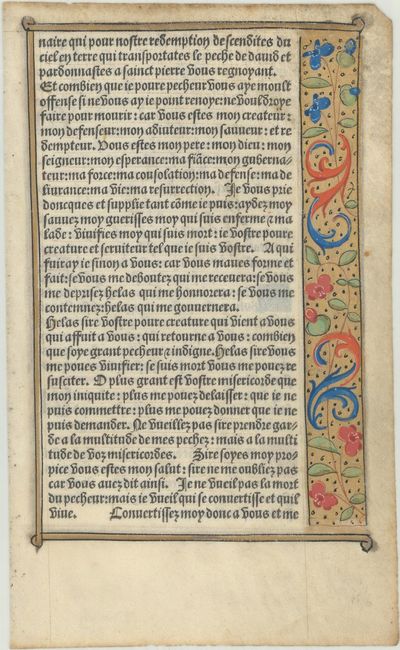 naire qui pour nostre redemption descendites du
ciel en terre qui transportates le peche de dauid et
pardonnastes a sainct pierre vous regnoyant.
Et combien que ie poure pecheur vous aye moult
offense si ne vous ay ie point renoye: ne vouldroye
faire pour mourir: car vous estes mon createur:
mon defenseur: mon adiuteur: mon sauueur: et re
dempteur. Vous estes mon pere: mon dieu: mon
seigneur: mon esperance: ma fiãce: mon guberna-
teur: ma force: ma consolation: ma defense: ma de
liurance: ma vie: ma resurrection. Je vous prie
doncques et supplie tant cõme ie puis: aydez moy
sauuez moy guerisses moy qui suis enferme ⁊ ma
lade: viuifies moy qui suis mort: ie vostre poure
creature et seruiteur tel que ie suis vostre. A qui
fuiray ie sinon a vous: car vous maues forme et
fait: se vous me deboutez qui me receuera: se vous
me deprisez helas qui me honnorera: se vous me
contemnez: helas qui me gouuernera.
Helas sire vostre poure creature qui vient a vous
qui affuit a vous: qui retourne a vous: combien
que soye grant pecheur ⁊ indigne. Helas sire vous
me poues viuifier: se suis mort vous me pouez re
susciter. O plus grant est vostre misericorde que
mon iniquite: plus me pouez delaisser: que ie ne
puis commettre: plus me pouez donner que ie ne
puis demander. Ne vueillez pas sire prendre gar-
de a la multitude de mes pechez: mais a la multi
tude de voz misericordes. Sire soyes moy pro-
pice vous estes mon salut: sire ne me oubliez pas
car vous auez dit ainsi. Je ne vueil pas la mort
du pecheur: mais ie vueil qui se conuertisse et quil
viue. Conuertissez moy donc a vous et me